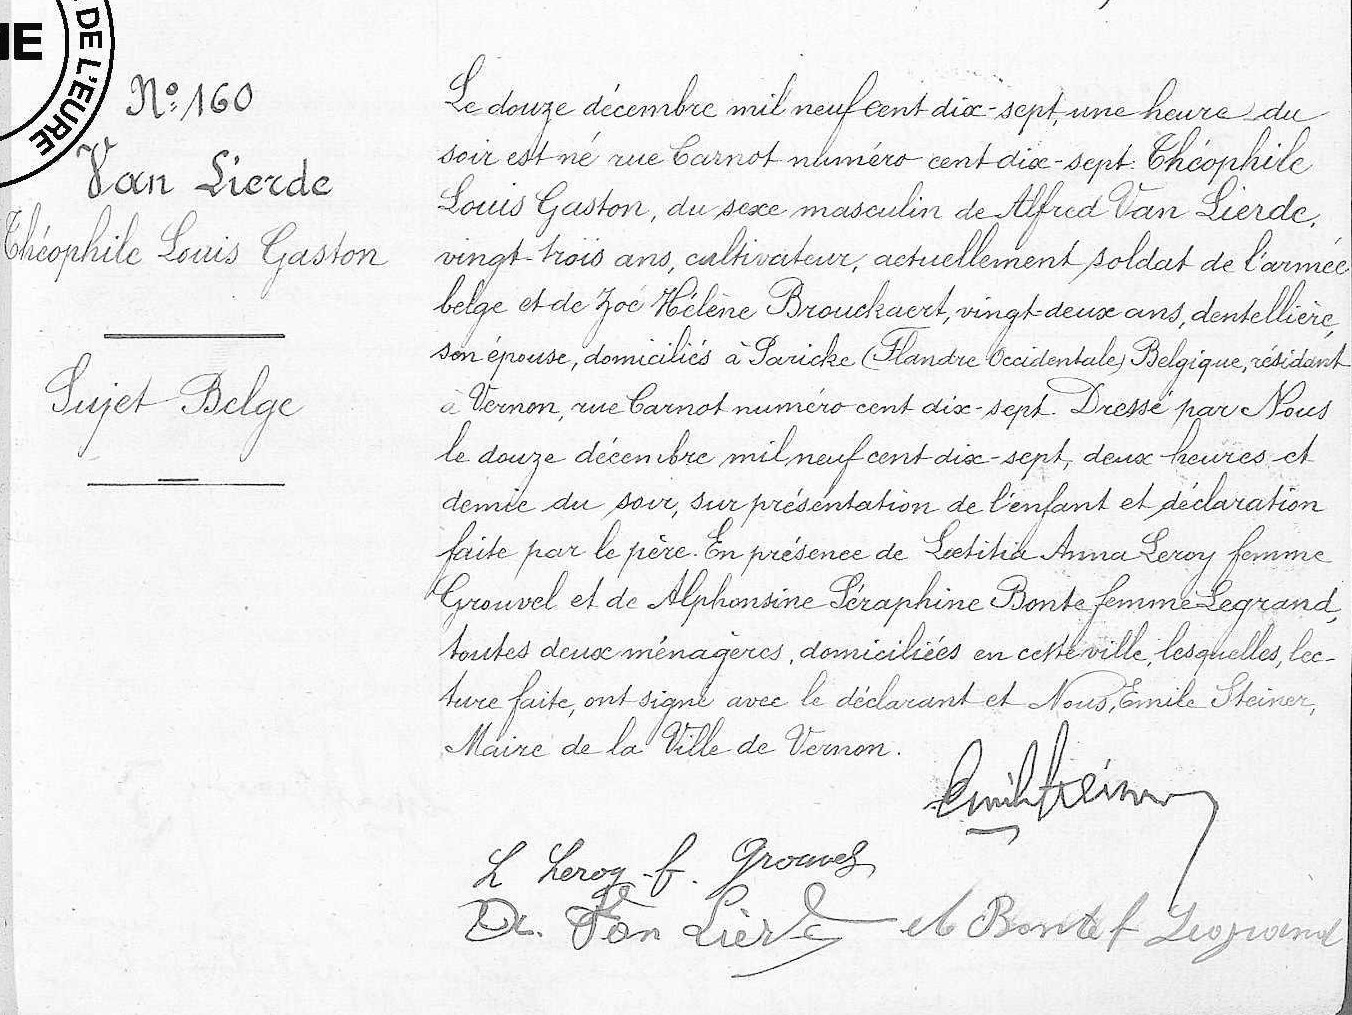 IE
DE L'EURE
N°: 160
Van Lierde
Théophile Louis Gaston
Sujet Belge
Le douze décembre mil neuf cent dix-sept, une heure du
soir est né rue Carnot numéro cent dix-sept: Théophile
Louis Gaston, du sexe masculin de Alfred Van Lierde,
vingt-trois ans, cultivateur, actuellement soldat de l'armée
belge et de Zoé Hélène Brouckaert, vingt-deux ans, dentellière,
son épouse, domiciliés à Paricke (Flandre Occidentale) Belgique, résidant
à Vernon, rue Carnot numéro cent dix-sept. Dressé par Nous
le douze décembre mil neuf cent dix-sept, deux heures et
demie du soir, sur présentation de l'enfant et déclaration
faite par le père. En présence de Lœtitia Anna Leroy femme
Grouvel et de Alphonsine Séraphine Bonte femme Legrand,
toutes deux ménagères, domiciliées en cette ville, lesquelles, lec-
ture faite, ont signé avec le déclarant et Nous, Emile Steiner,
Maire de la Ville de Vernon.
Emile Steiner
L Leroy f. Grouvel
Van Lierde Bonte f Legrand